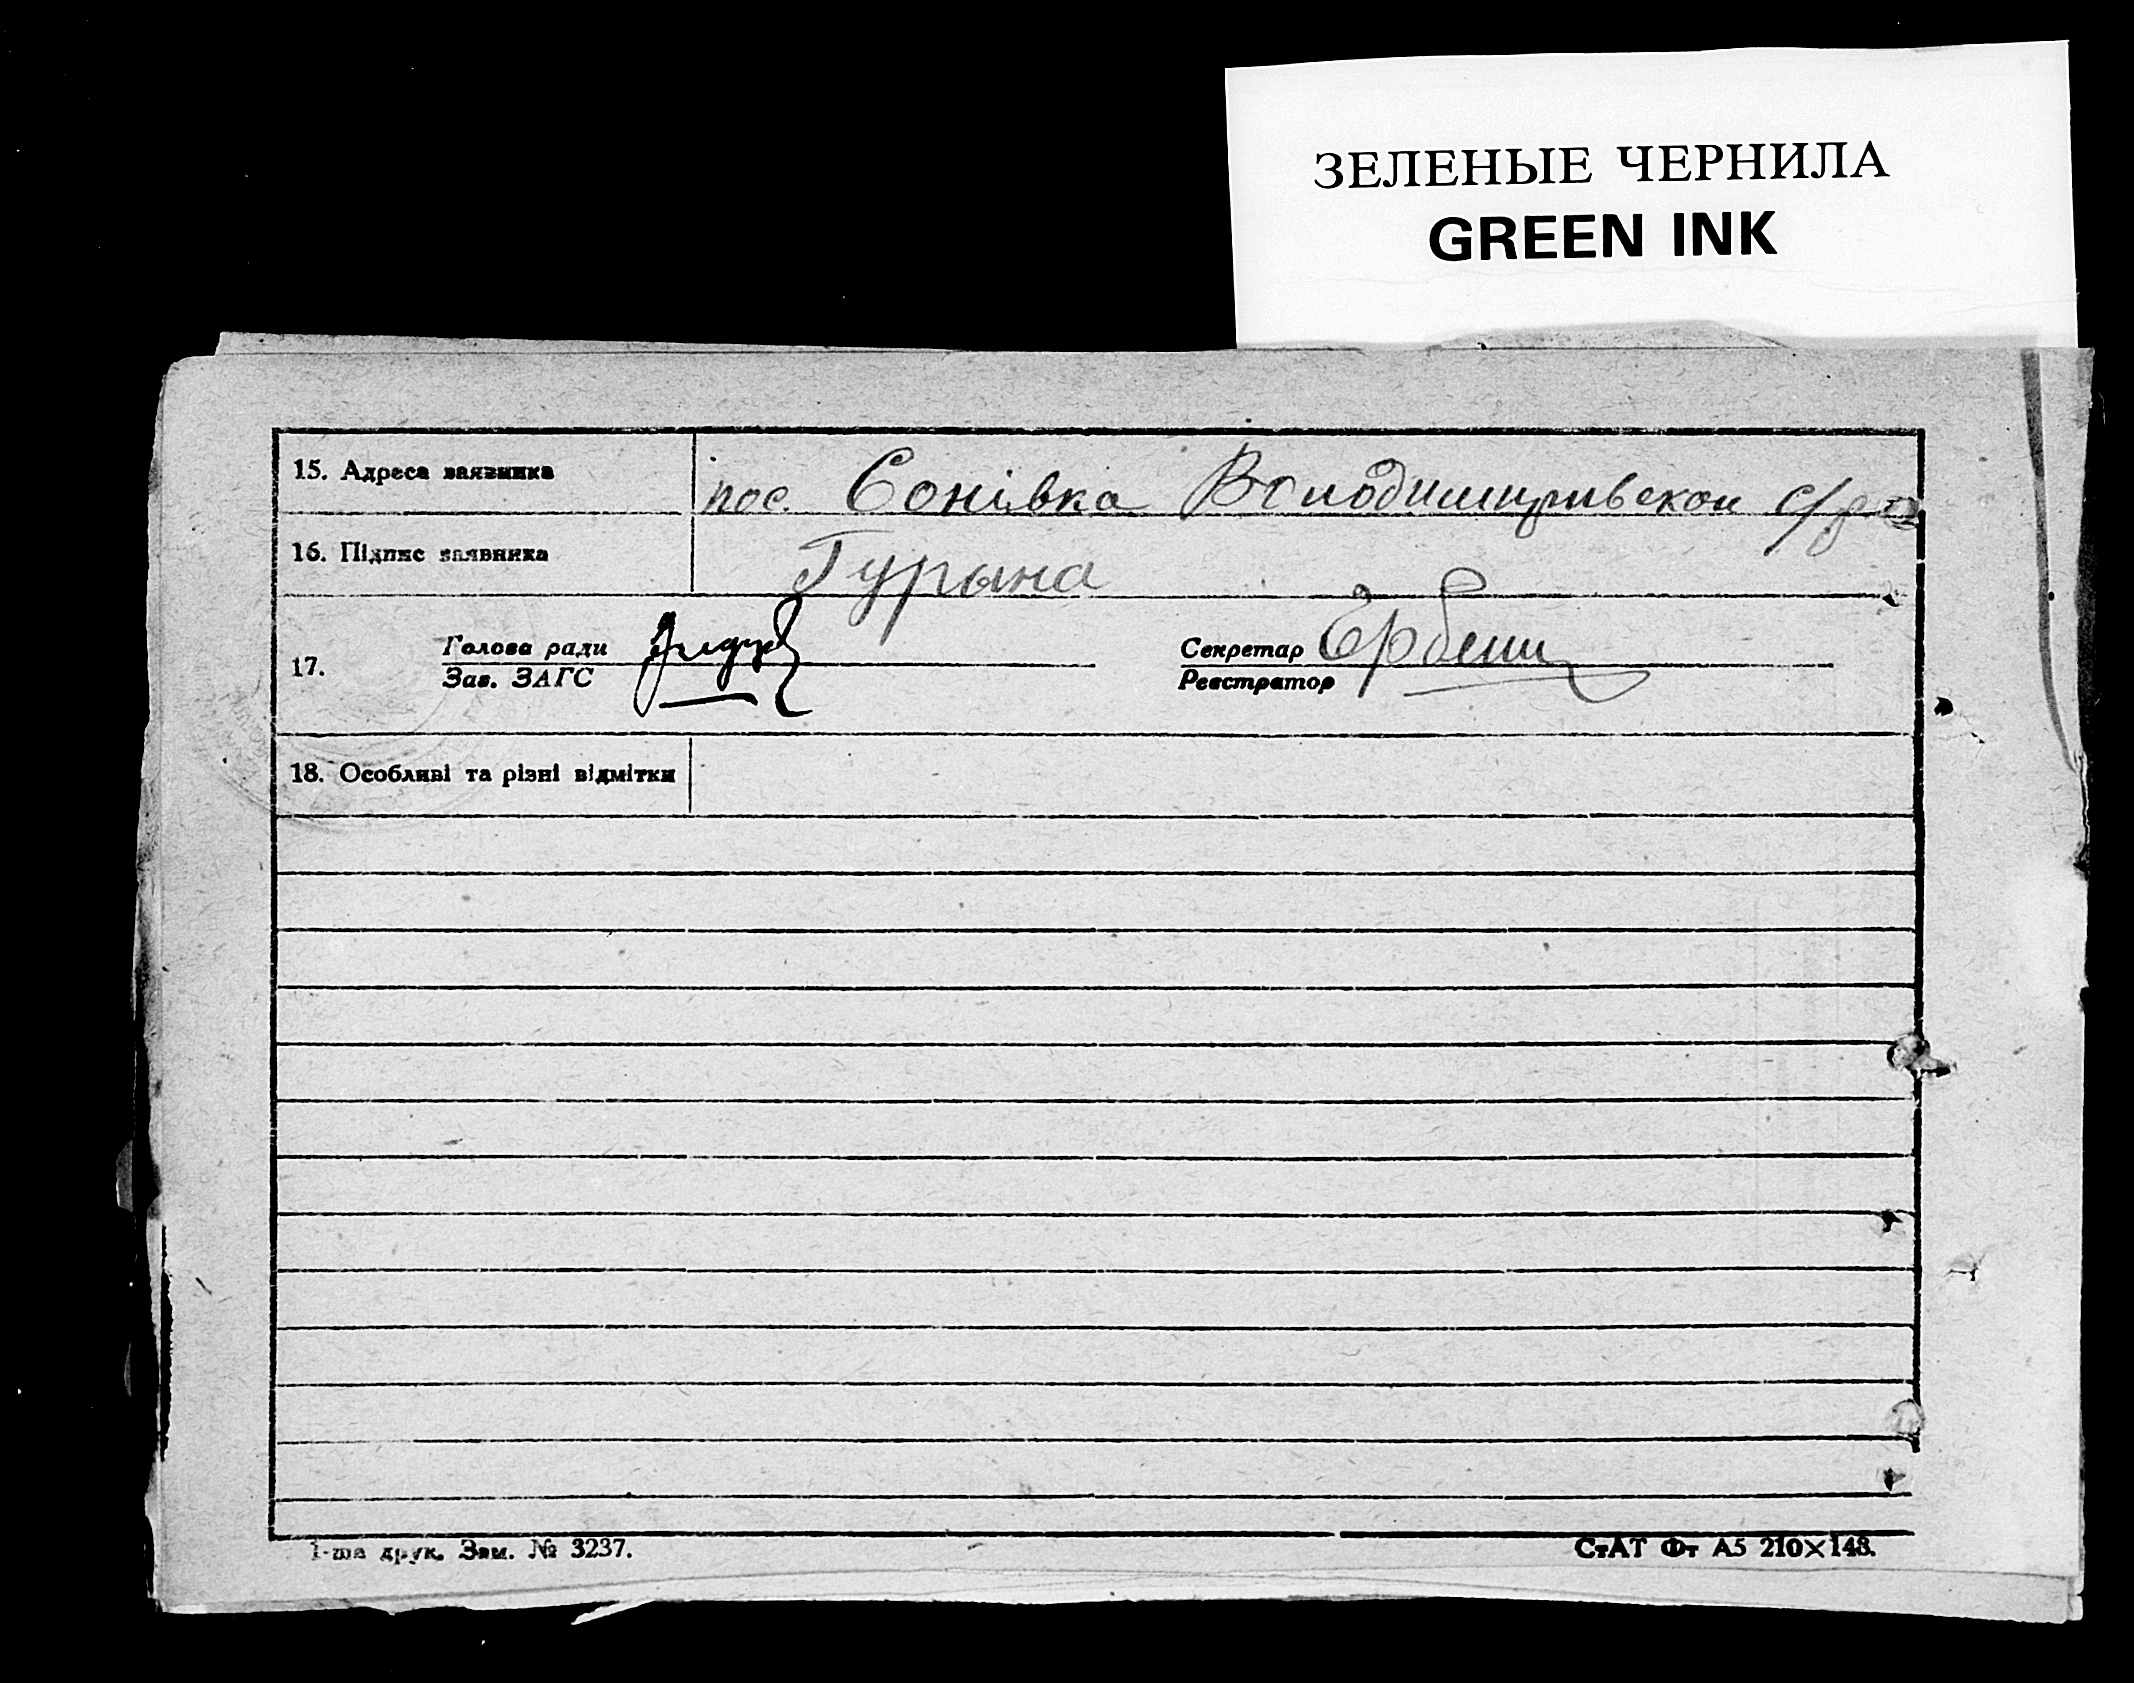 ЗЕЛЕНЫЕ ЧЕРНИЛА
GREEN INK
15. Адреса заявника
пос. Сонівка Володимирівской с/ра
16. Підпис заявника
Гурына
17.
Голова ради
Зав. ЗАГС
Секретар
Реєстратор
18. Особливі та різні відмітки
1-ша друк. Зам. № 3237.
СтАТ Фт А5 210×148.